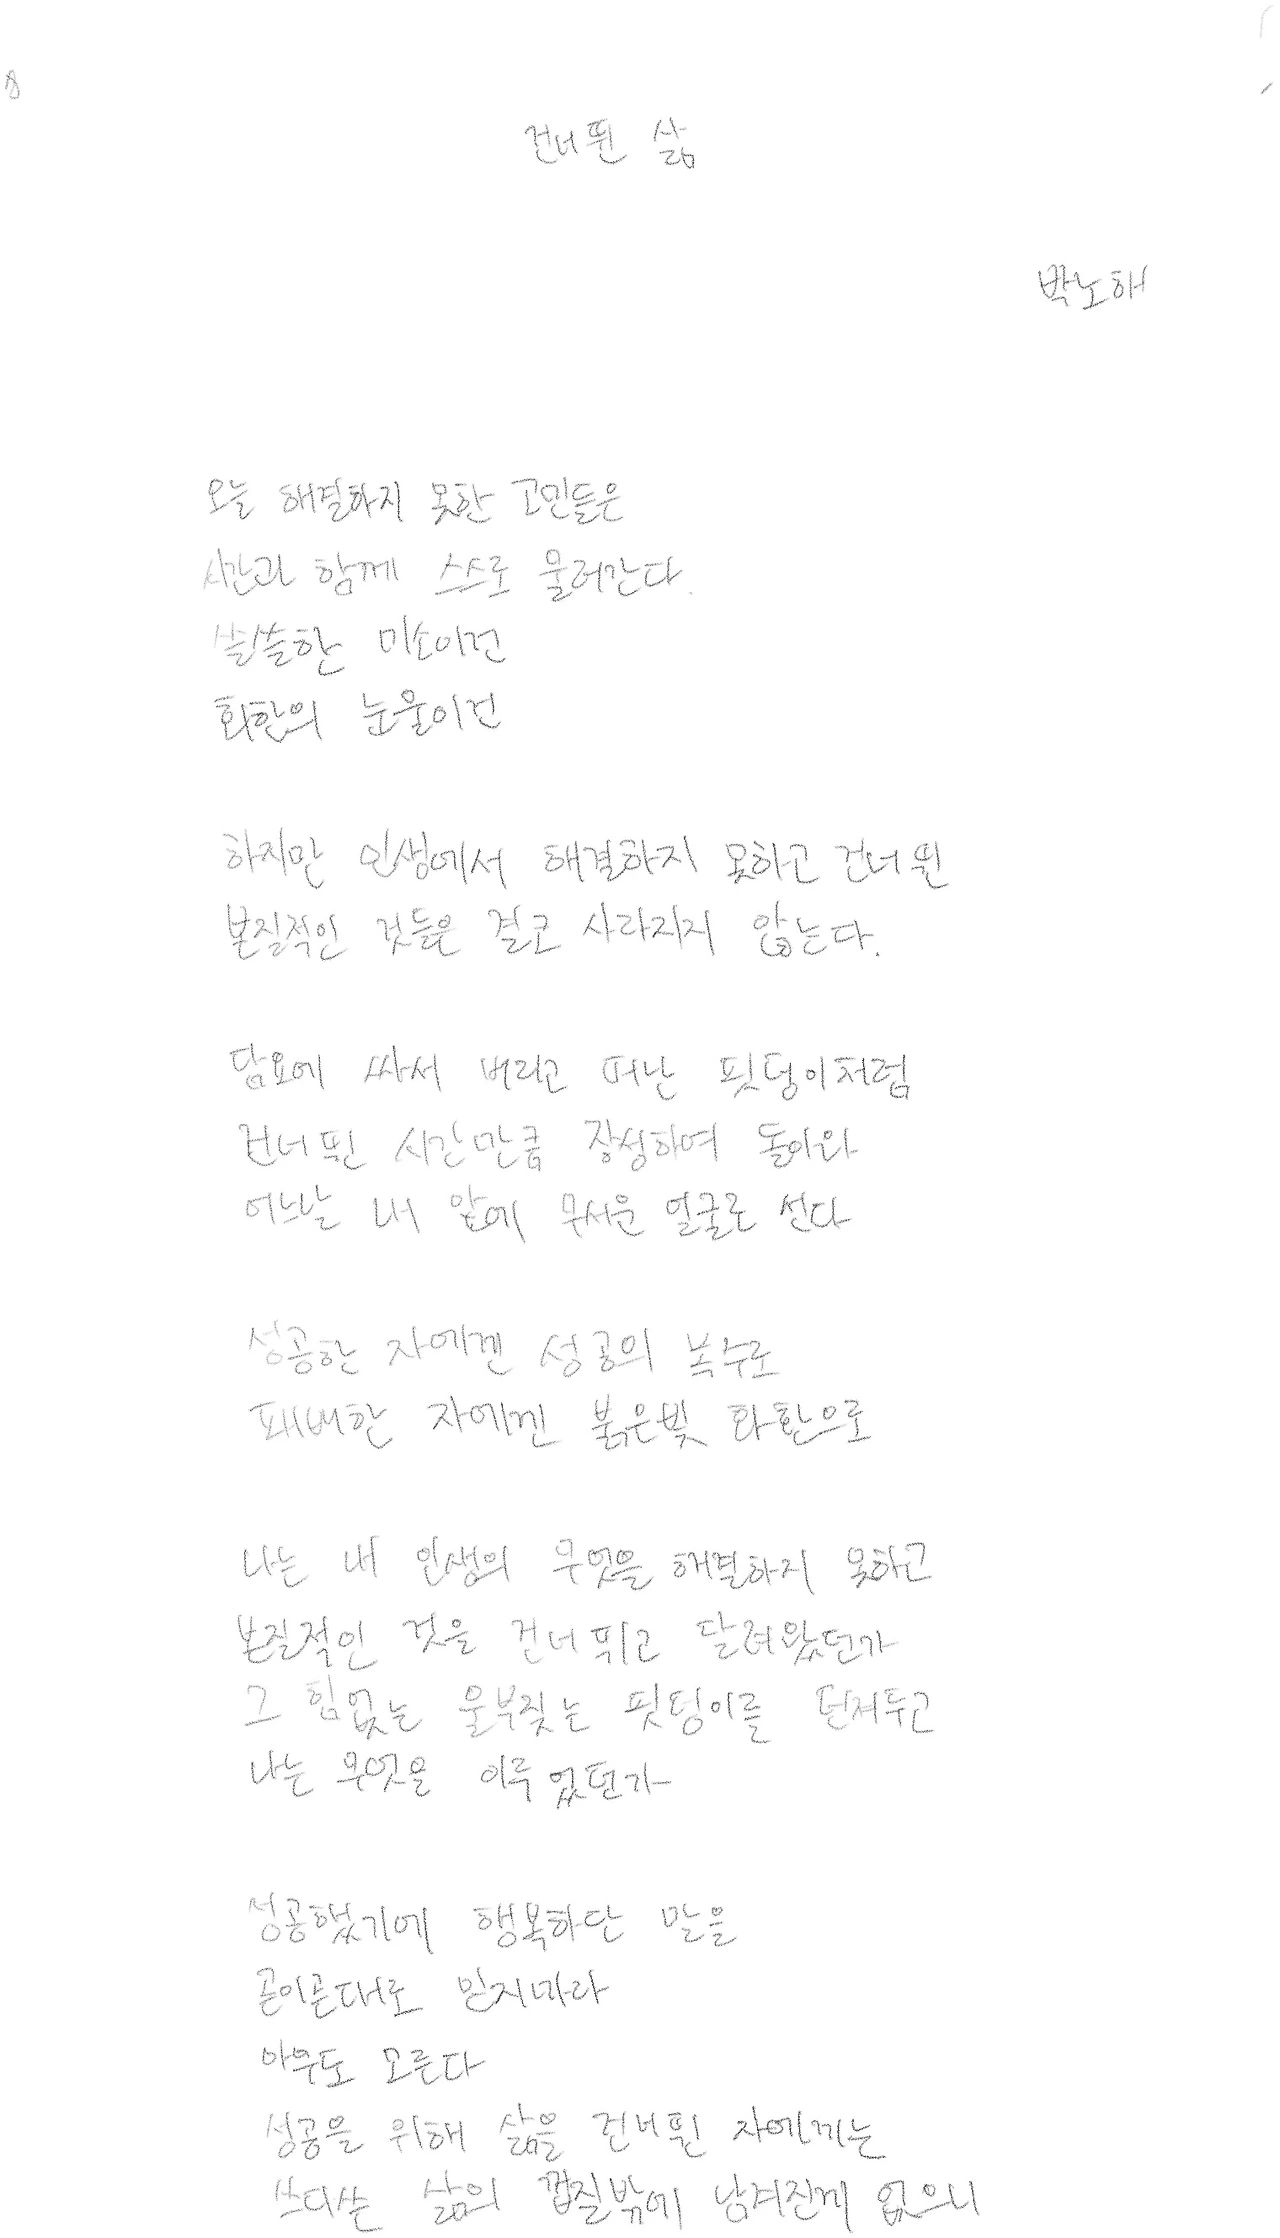 건너뛴 삶
박노해
오늘 해결하지 못한 고민들은
시간과 함께 스스로 물러간다.
쓸쓸한 미소이건
회한의 눈물이건
하지만 인생에서 해결하지 못하고 건너뛴
본질적인 것들은 결코 사라지지 않는다.
담요에 싸서 버리고 떠난 핏덩이처럼
건너뛴 시간만큼 장성하여 돌아와
어느날 내 앞에 무서운 얼굴로 선다
성공한 자에겐 성공의 복수로
패배한 자에겐 붉은빛 화환으로
나는 내 인생의 무엇을 해결하지 못하고
본질적인 것을 건너뛰고 달려왔던가
그 힘없는 울부짖는 핏덩이를 던져두고
나는 무엇을 이루었던가
성공했기에 행복하단 말을
곧이곧대로 믿지마라
아무도 모른다
성공을 위해 삶을 건너뛴 자에게는
쓰디쓴 삶의 껍질밖에 남겨진게 없으니